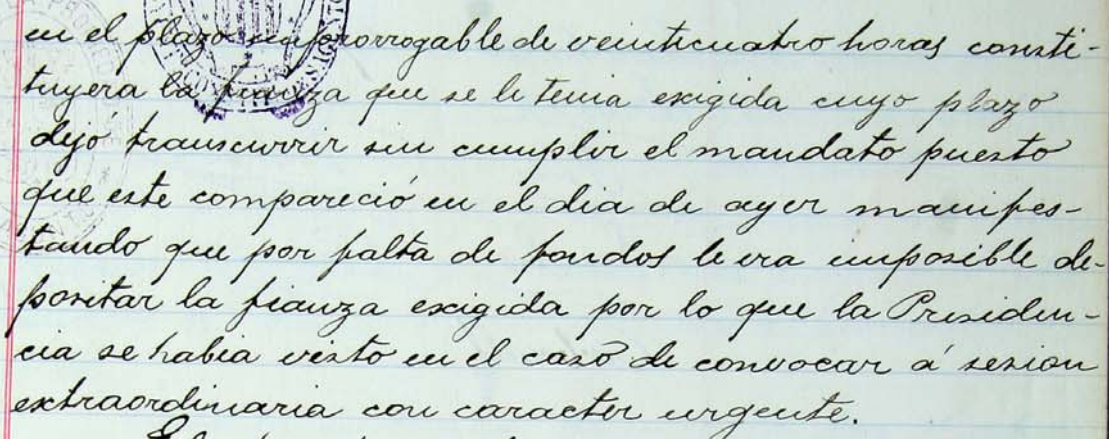 en el plazo improrrogable de veinticuatro horas consti-
tuyera la fianza que se le tenia exigida cuyo plazo
dejó transcurrir sin cumplir el mandato puesto
que este compareció en el dia de ayer manifes-
tando que por falta de fondos le era imposible de-
positar la fianza exigida por lo que la Presiden-
cia se habia visto en el caso de convocar á sesion
extraordinaria con caracter urgente.